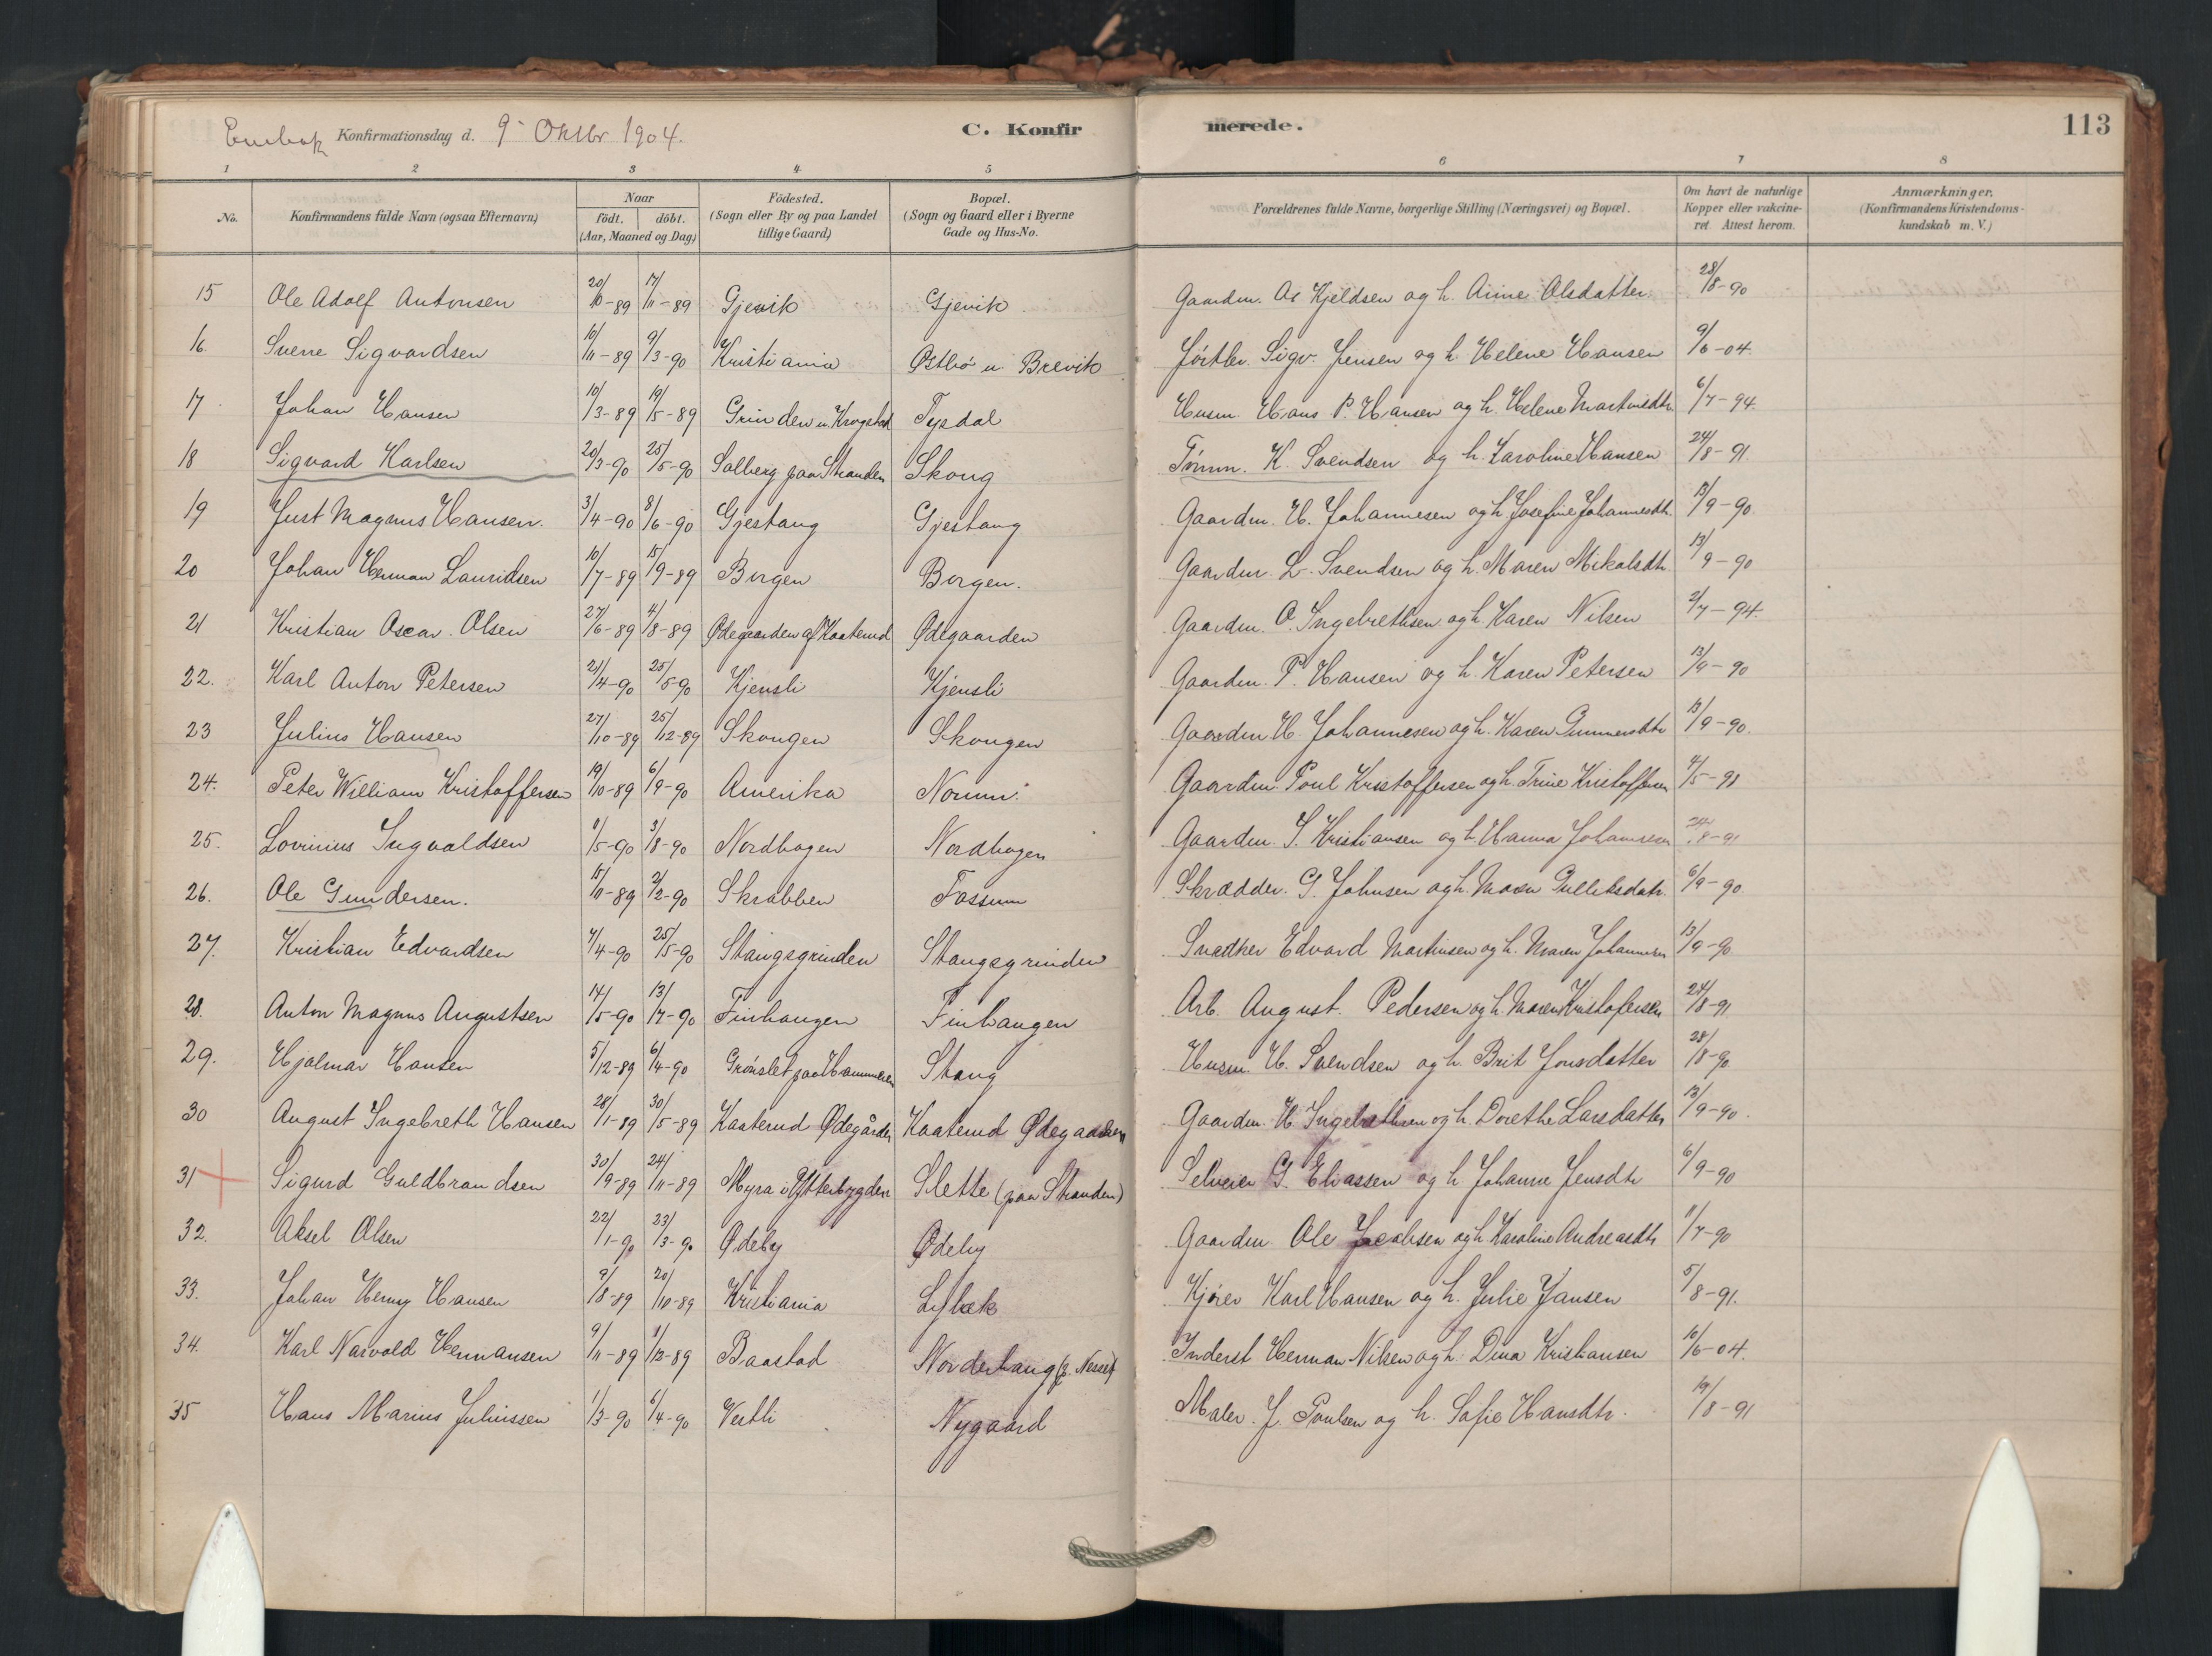 Enebak Konfirmationsdag d. 9 Oktbr 1904. C. Konfirmerede. 113
1 2 3 4 5 6 7 8
No. Konfirmandens fulde Navn (ogsaa Efternavn) Naar födt. döbt. (Aar, Maaned og Dag) Födested. (Sogn eller By og paa Landet tillige Gaard) Bopæl. (Sogn og Gaard eller i Byerne Gade og Hus-No. Forældrenes fulde Navne, borgerlige Stilling (Næringsvei) og Bopæl. Om havt de naturlige Kopper eller vakcineret. Attest herom. Anmærkninger. (Konfirmandens Kristendomskundskab m. V.)
15 Ole Adolf Antonsen 20/10-89 17/11-89 Gjevik Gjevik Gaardm. A. Kjeldsen og h. Anne Olsdatter 28/8-90
16. Sverre Sigvardsen 10/11-89 9/3-90 Kristiania Østbö u. Brevik Sigv. Jensen og h. Helene Hansen 9/6-04.
17 Johan Hansen 10/3-89 19/5-89 Grinden u. Krogstad Tysdal Husm. Hans P. Hansen og h. Helene Martinsdtr. 6/7-94.
18 Sigvard Karlsen 20/3-90 25/5-90 Solberg paa Stranden Skoug Tömm. K. Svendsen og h. Karoline Hansen 24/8-91
19 Just Magnus Hansen. 3/4-90 8/6-90 Gjestang Gjestang Gaardm. H. Johannesen og h. Josefine Johannesdtr. 13/9-90
20 Johan Herman Lauridsen 10/7-89 15/9-89 Borgen Borgen. Gaardm. L. Svendsen og h. Maren Mikalsdtr. 13/9-90
21 Kristian Oscar Olsen 27/6-89 4/8-89 Ødegaarden af Kaaterud Ødegaarden Gaardm. O. Ingebrethsen og h. Karen Nilsen 2/7-94.
22. Karl Anton Petersen 21/4-90 25/5-90 Kjensli Kjensli Gaardm. P. Hansen og h. Karen Petersen 13/9-90
23 Julius Hansen 27/10-89 25/12-89 Skougen Skougen Gaardm H. Johannesen og h. Karen Gunnersdtr 13/9-90.
24. Peter William Kristoffersen 19/10-89 6/9-90 Amerika Norum. Gaardm. Poul Kristoffersen og h. Trine Kristoffersen 7/5-91
25. Lovinius Ingvaldsen 1/5-90 3/8-90 Nordhagen Nordhagen Gaardm. I. Kristiansen og h. Hanna Johannesen 24/8-91
26. Ole Gundersen. 15/11-89 2/2-90 Skrabben Fossum Skrædder. G. Johnsen og h. Maren Gulliksdatr. 6/9-90.
27. Kristian Edvardsen 7/4-90 25/5-90 Stangsgrinden Stangsgrinden Snedker Edvard Martinsen og h. Maren Johannesen 13/9-90
28. Anton Magnus Augustsen 14/5-90 13/7-90 Finhaugen Finhaugen Arb. August Pedersen og h. Maren Kristofersen 24/8-91
29. Hjalmar Hansen 5/12-89 6/4-90 Grönslet paa Hammeren Stang Husm. H. Svendsen og h. Brit Jonsdatter 28/8-90
30 August Ingebreth Hansen 28/1-89 30/5-89 Kaaterud Ødegården Kaaterud Ødegaarden Gaardm. H. Ingebrethsen og h. Dorethe Larsdatter 13/9-90.
31 Sigurd Guldbrandsen 30/9-89 24/11-89 Myra i Ytterbygden Slette (paa Stranden) Selveier G. Eliassen og h Johanne Jensdtr 6/9-90
32. Aksel Olsen 22/1-90 23/3-90 Ødeby Ødeby Gaardm. Ole Jacobsen og h. Karoline Andreasdtr 1/7-90
33. Johan Henry Hansen 9/8-89 20/10-89 Kristiania Lybæk Kjörer Karl Hansen og h. Julie Jansen 5/8-91.
34. Karl Narvald Hermansen 9/11-89 1/12-89 Baastad Norderhaug Inderst Herman Nilsen og h. Dina Kristiansen 10/6-04.
35 Hans Marius Juliussen 1/3-90 6/4-90 Vestli Nygaard Maler. J. Poulsen og h. Sofie Hansdtr. 19/8-91